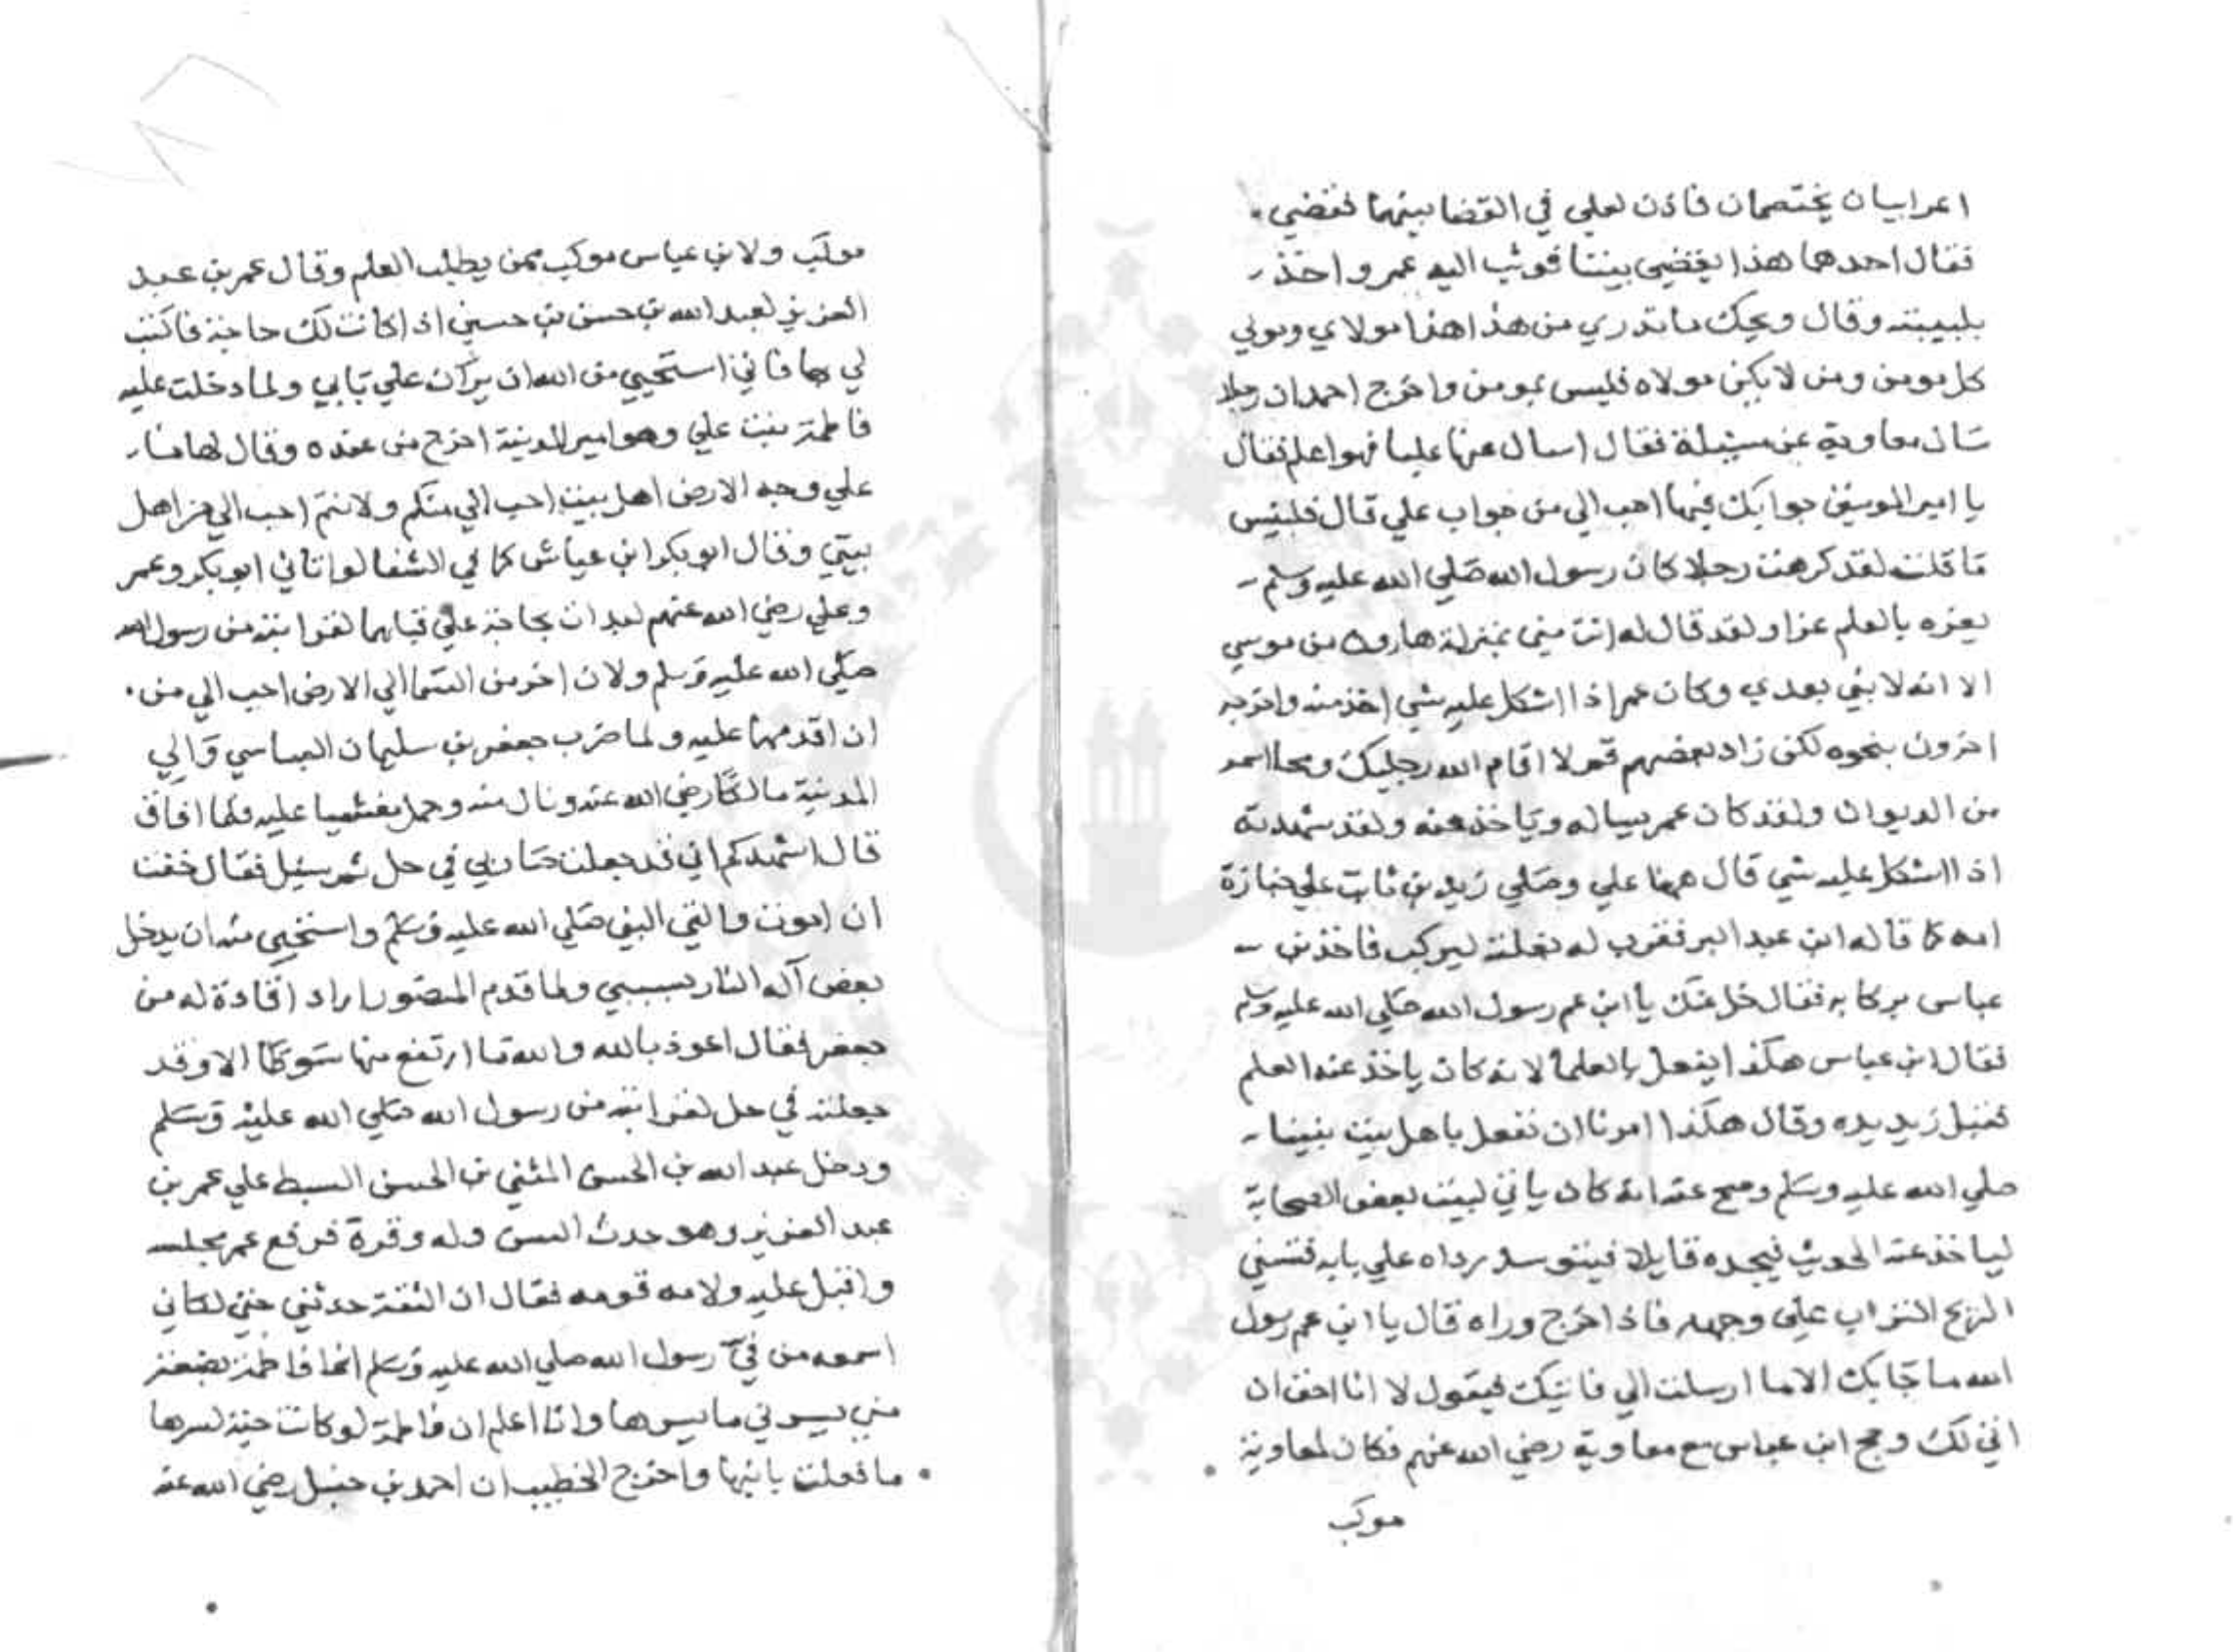 اعرابيان يختصمان فاذن لعلي في القضا بينهما فقضي
فقال احدهما هذا يقضي بيننا فوثب اليه عمر واخذ
بلبيبته وقال ويحك ما تدري من هذا هذا مولاي ومولي
كل مومن ومن لا يكن مولاه فليس بمومن واخرج احمد ان رجلا
سال معاوية عن مسيلة فقال اسال عنها عليا فهو اعلم فقال
يا امير المومنين جوابك فيها احب الي من جواب علي قال فلبيس
ما قلت لقد كرهت رجلا كان رسول الله صلي الله عليه وسلم
يعزه بالعلم عزا ولقد قال له انت مني بمنزلة هارون من موسي
الا انه لا نبي بعدي وكان عمر اذا اشكل عليه شي اخذ منه واخرجه
اخرون بنحوه لكن زاد بعضهم قم لا اقام الله رجليك ومحا اسمه
من الديوان ولقد كان عمر يساله وياخذ عنه ولقد شهدته
اذا اشكل عليه شي قال ههنا علي وصلي زيد بن ثابت علي جنازة
امه كما قاله ابن عبد البر فقرب له بغلته ليركب فاخذ بن
عباس بركابه فقال خل عنك يا ابن عم رسول الله صلي الله عليه وسلم
فقال ابن عباس هكذا يفعل بالعلما لانه كان ياخذ عنه العلم
فقبل زيد يده وقال هكذا امرنا ان نفعل باهل بيت نبينا
صلي الله عليه وسلم وصح عنه انه كان ياتي لبيت بعض الصحابة
لياخذ عنه الحديث فيجده قايلا فيتوسد رداه علي بابه فتسفي
الريح التراب علي وجهه فاذا خرج وراه قال يا ابن عم رسول
الله ما جابك الا ما ارسلت الي فاتيك فيقول لا انا احق ان
اتي لك وحج ابن عباس مع معاوية رضي الله عنهم فكان لمعاوية
موكب
موكب ولابن عباس موكب ممن يطلب العلم وقال عمر بن عبد
العزيز لعبد الله بن حسن بن حسين اذا كانت لك حاجة فاكتب
لي بها فاني استحيي من الله ان يراك علي بابي ولما دخلت عليه
فاطمة بنت علي وهو امير المدينة اخرج من عنده وقال لها ما
علي وجه الارض اهل بيت احب الي منكم ولانتم احب الي من اهل
بيتي وقال ابو بكر ابن عياش كما في الشفا لو اتاني ابو بكر وعمر
وعلي رضي الله عنهم لبدات بحاجة علي قبلهما لقرابته من رسول الله
صلي الله عليه وسلم ولان اخر من السما الي الارض احب الي من
ان اقدمهما عليه ولما ضرب جعفر بن سليمان العباسي والي
المدينة مالكا رضي الله عنه ونال منه وحمل مغشيا عليه فلما افاق
قال اشهدكم اني قد جعلت ضاربي في حل ثم سيل فقال خفت
ان اموت والقي النبي صلي الله عليه وسلم واستحيي منه ان يدخل
بعض آله النار بسببي ولما قدم المنصور اراد اقادة له من
جعفر فقال اعوذ بالله والله ما ارتفع منها سوط الا وقد
جعلته في حل لقرابته من رسول الله صلي الله عليه وسلم
ودخل عبد الله بن الحسن المثني بن الحسن السبط علي عمر بن
عبد العزيز وهو حدث السن وله وقرة فرفع عمر مجلسه
واقبل عليه ولامه قومه فقال ان الثقة حدثني حتي لكاني
اسمعه من في رسول الله صلي الله عليه وسلم انما فاطمة بضعة
مني يسرني ما يسرها وانا اعلم ان فاطمة لو كانت حية لسرها
ما فعلت بابنها واخرج الخطيب ان احمد بن حنبل رضي الله عنه